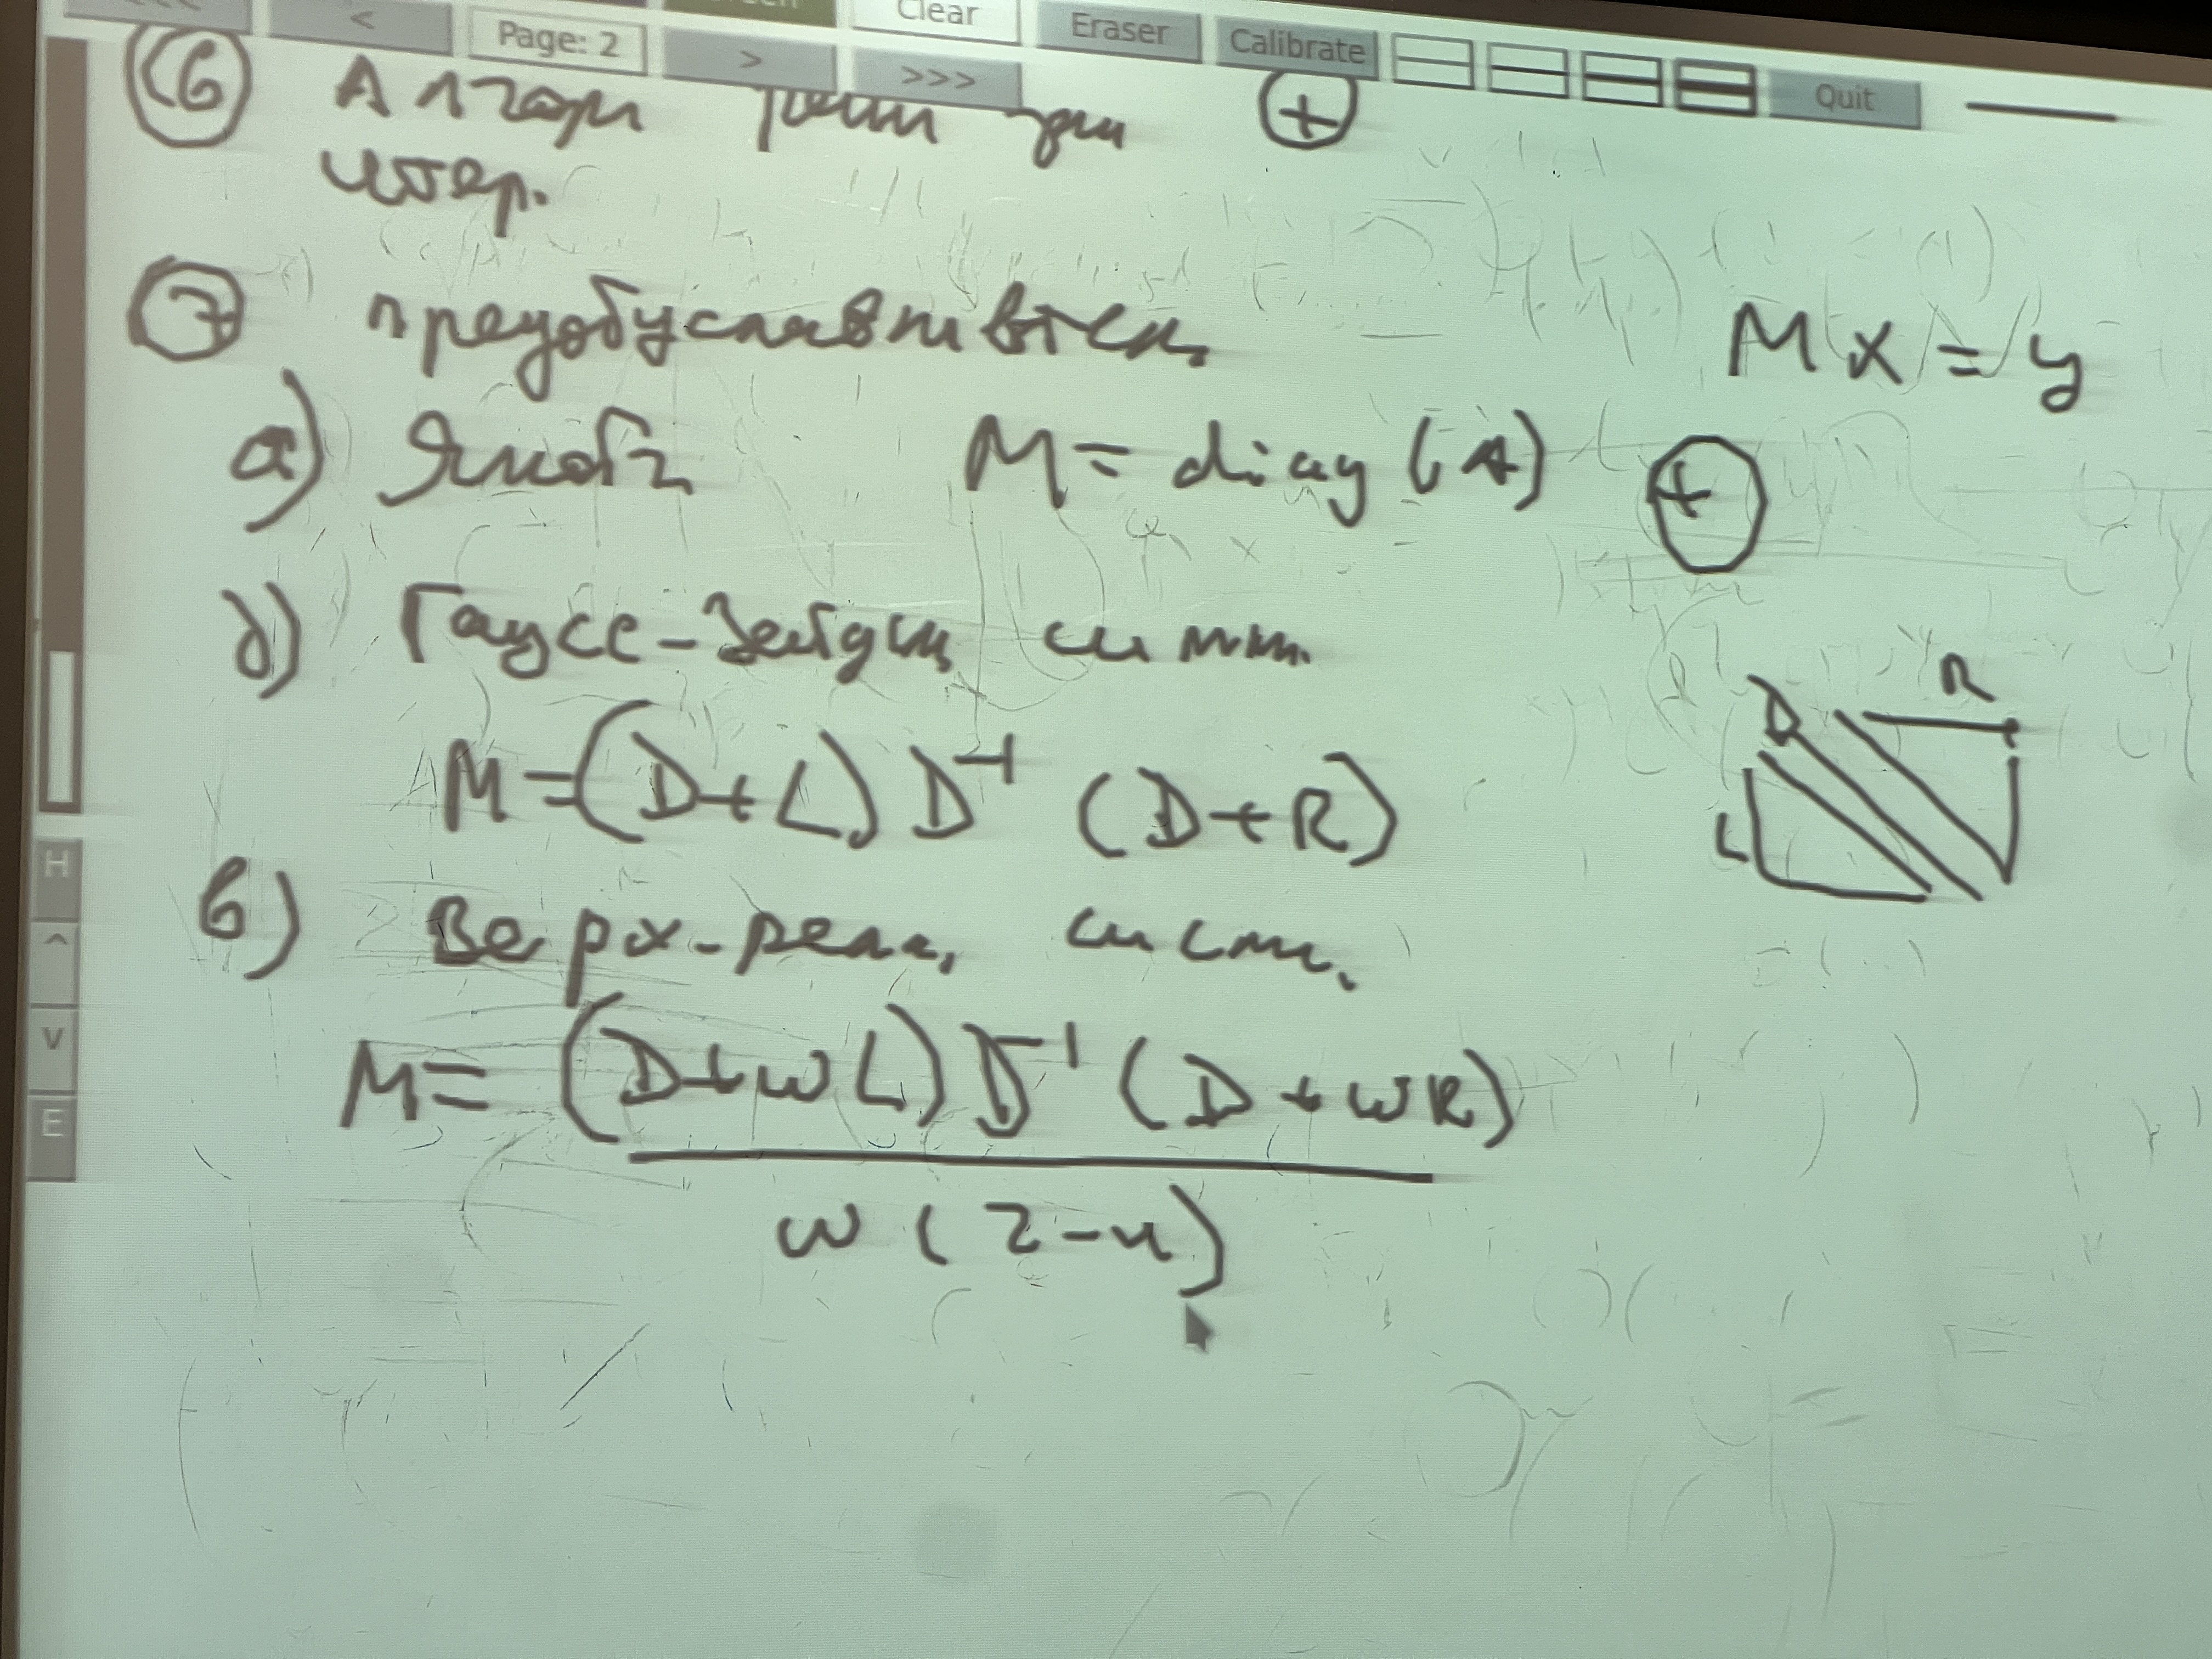 <<<
<
Page: 2
>
>>>
Clear
Eraser
Calibrate
Quit
6 Алгори реш при +
итер.
7 предобуславливатели
Mx = y
а) Якоби M = diag (A) +
б) Гаусс-Зейдель симм.
M = (D+L) D⁻¹ (D+R)
D R L
в) Верх-рел. симм.
M = (D+wL) D⁻¹ (D+wR)
w (2-w)
H
^
v
E